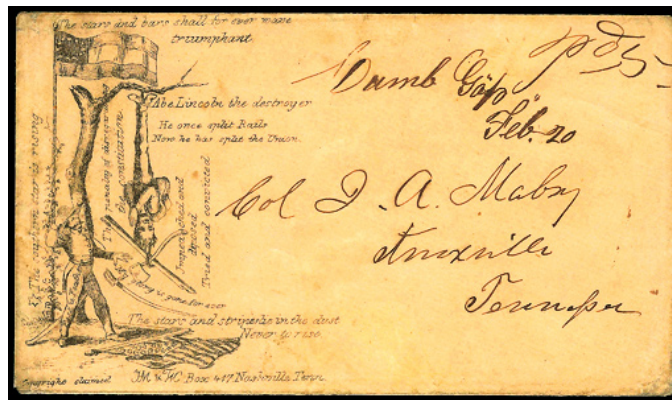 The stars and bars shall for ever wave
triumphant.
Abe Lincoln the destroyer
He once split Rails
Now he has split the Union.
The southern star is rising
The penalty of
the constitution
Impeached and
Tried and convicted
glory is gone for ever
The stars and stripes in the dust
Never to rise
Copyright claimed
Box 417 Nashville Tenn.
Pd 5
Dumb Gap
Feb. 20
Col J. A. Mabry
Knoxville